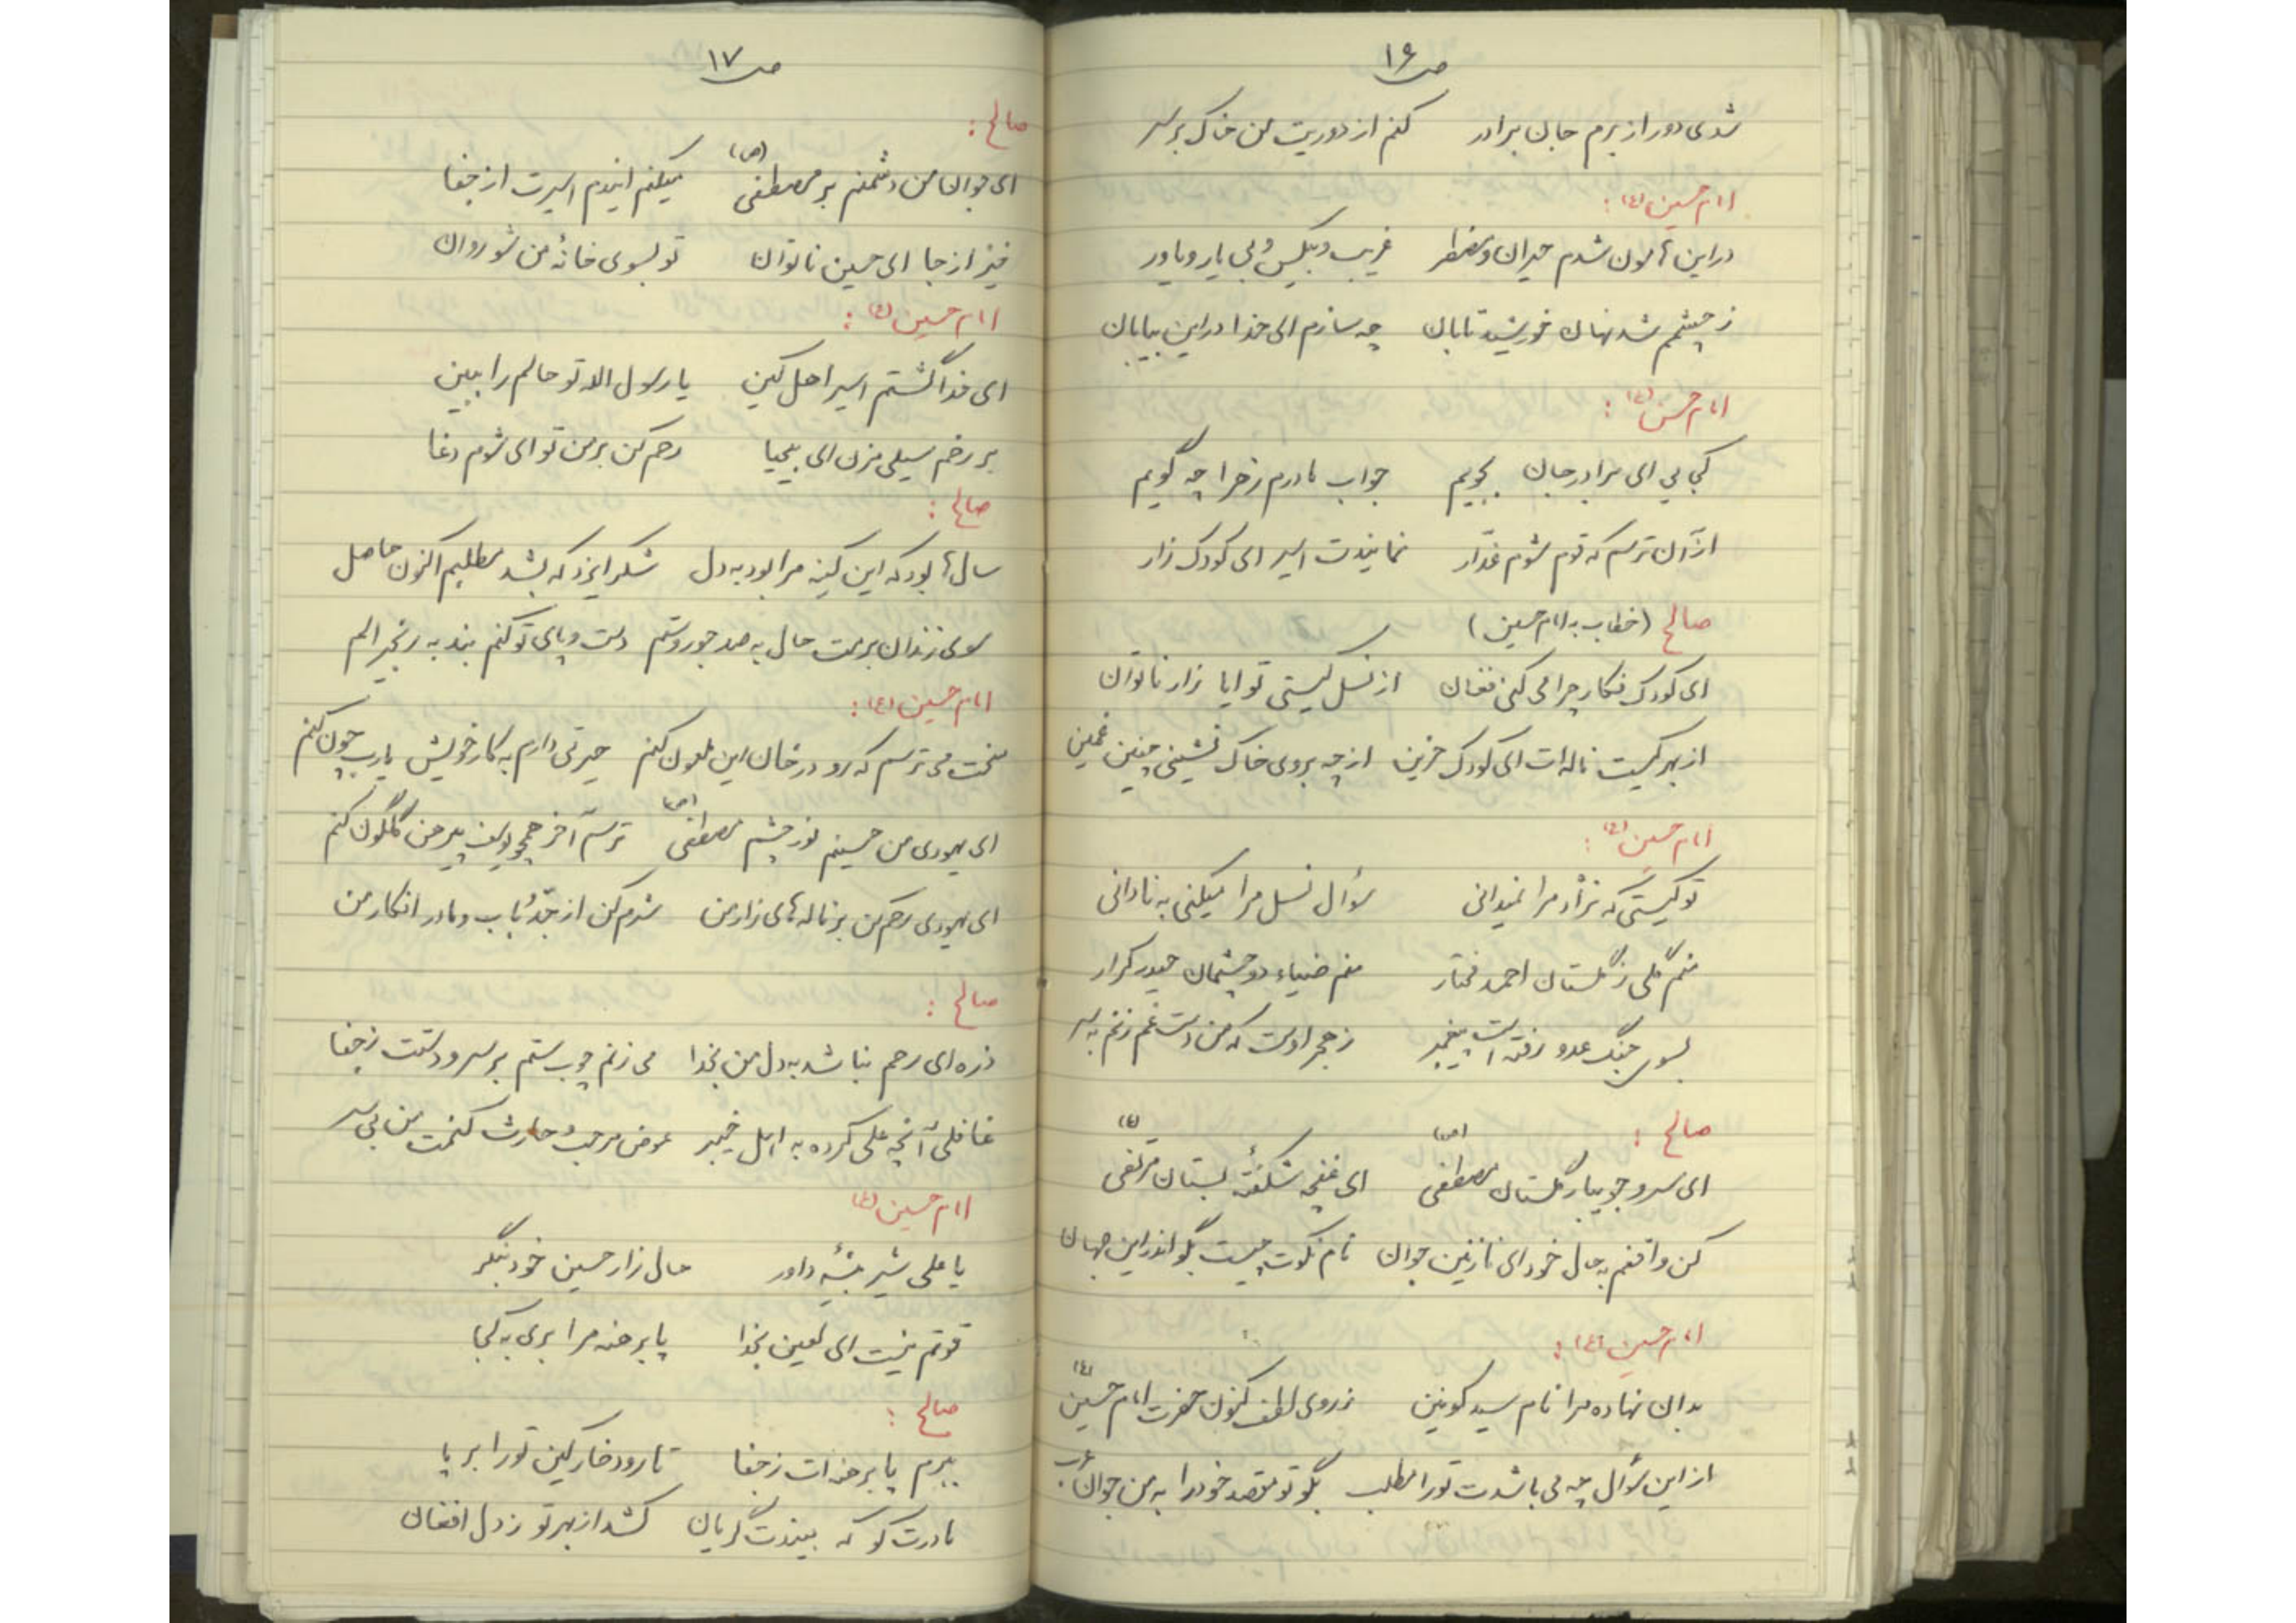 ص ۱۶
شدی دور از برم جان برادر کنم از دوریت من خاک بر سر
امام حسین (ع) :
در این هامون شدم حیران و مضطر غریب و بیکس و بی یار و یاور
ز چشمم شد نهان خورشید تابان چه سازم ای خدا در این بیابان
امام حسن (ع) :
کجایی ای برادر جان بجویم جواب مادرم زهرا چه گویم
از آن ترسم که قوم شوم غدّار نمایندت اسیر ای کودک زار
صالح (خطاب به امام حسین)
ای کودک فکار چرا می کنی فغان از نسل کیستی تو ایا زار ناتوان
از بهر کیست ناله ات ای کودک حزین از چه بروی خاک نشینی چنین غمین
امام حسین (ع) :
تو کیستی که نژاد مرا نمیدانی سؤال نسل مرا میکنی به نادانی
منم گلی ز گلستان احمد مختار منم ضیاء دو چشمان حیدر کرار
بسوی جنگ عدو رفته است پیغمبر ز هجر اوست که من دست غم زنم به سر
صالح :
ای سرو جویبار گلستان مصطفی (ص) ای غنچه شکفتهٔ بستان مرتضی (ع)
کن واقفم به حال خود ای نازنین جوان نام نکوت چیست بگو اندر این جهان
امام حسین (ع) :
بدان نهاده مرا نام سید کونین ز روی لطف کنون حضرت امام حسین (ع)
از این سؤال چه می باشدت تو را مطلب بگو تو مقصد خود را به من جوان عرب
ص ۱۷
صالح :
ای جوان من دشمنم بر مصطفی (ص) میکنم ایندم اسیرت از جفا
خیز از جا ای حسین ناتوان تو بسوی خانهٔ من شو روان
امام حسین (ع) :
ای خدا گشتم اسیر اهل کین یا رسول الله تو حالم را ببین
بر رخم سیلی مزن ای بیحیا رحم کن بر من تو ای شوم دغا
صالح :
سال ها بود که این کینه مرا بود به دل شکر ایزد که بشد مطلبم اکنون حاصل
سوی زندان برمت حال به صد جور و ستم دست و پای تو کنم بند به زنجیر الم
امام حسین (ع) :
سخت می ترسم که رو در خان این ملعون کنم حیرتی دارم به کار خویش یارب چون کنم
ای یهودی من حسینم نور چشم مصطفی (ص) ترسم آخر همچو یوسف پیرهن گلگون کنم
ای یهودی رحم کن بر ناله های زار من شرم کن از جدّ و باب و مادر افکار من
صالح :
ذره ای رحم نباشد به دل من بخدا می زنم چوب ستم بر سر و دستت ز جفا
غافلی آنچه علی کرده به اهل خیبر عوض مرحب و حارث کنمت من بی سر
امام حسین (ع)
یا علی شیر بیشهٔ داور حال زار حسین خود بنگر
قوتم نیست ای لعین بخدا پا برهنه مرا بری به کجا
صالح :
ببرم پا برهنه ات ز جفا تا رود خار کین تو را بر پا
مادرت کو که بیندت گریان کشد از بهر تو ز دل افغان